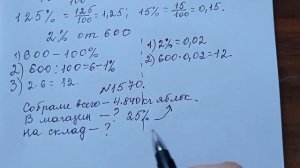 125% = 125/100 = 1,25; 15% = 15/100 = 0,15.
2% от 600
1) 600 – 100%
2) 600 : 100 = 6 – 1%
3) 2 · 6 = 12.
1) 2% = 0,02
2) 600 · 0,02 = 12.
№1570.
Собрали всего – 4.840 кг яблок.
В магазин – ? 25%
На склад – ?